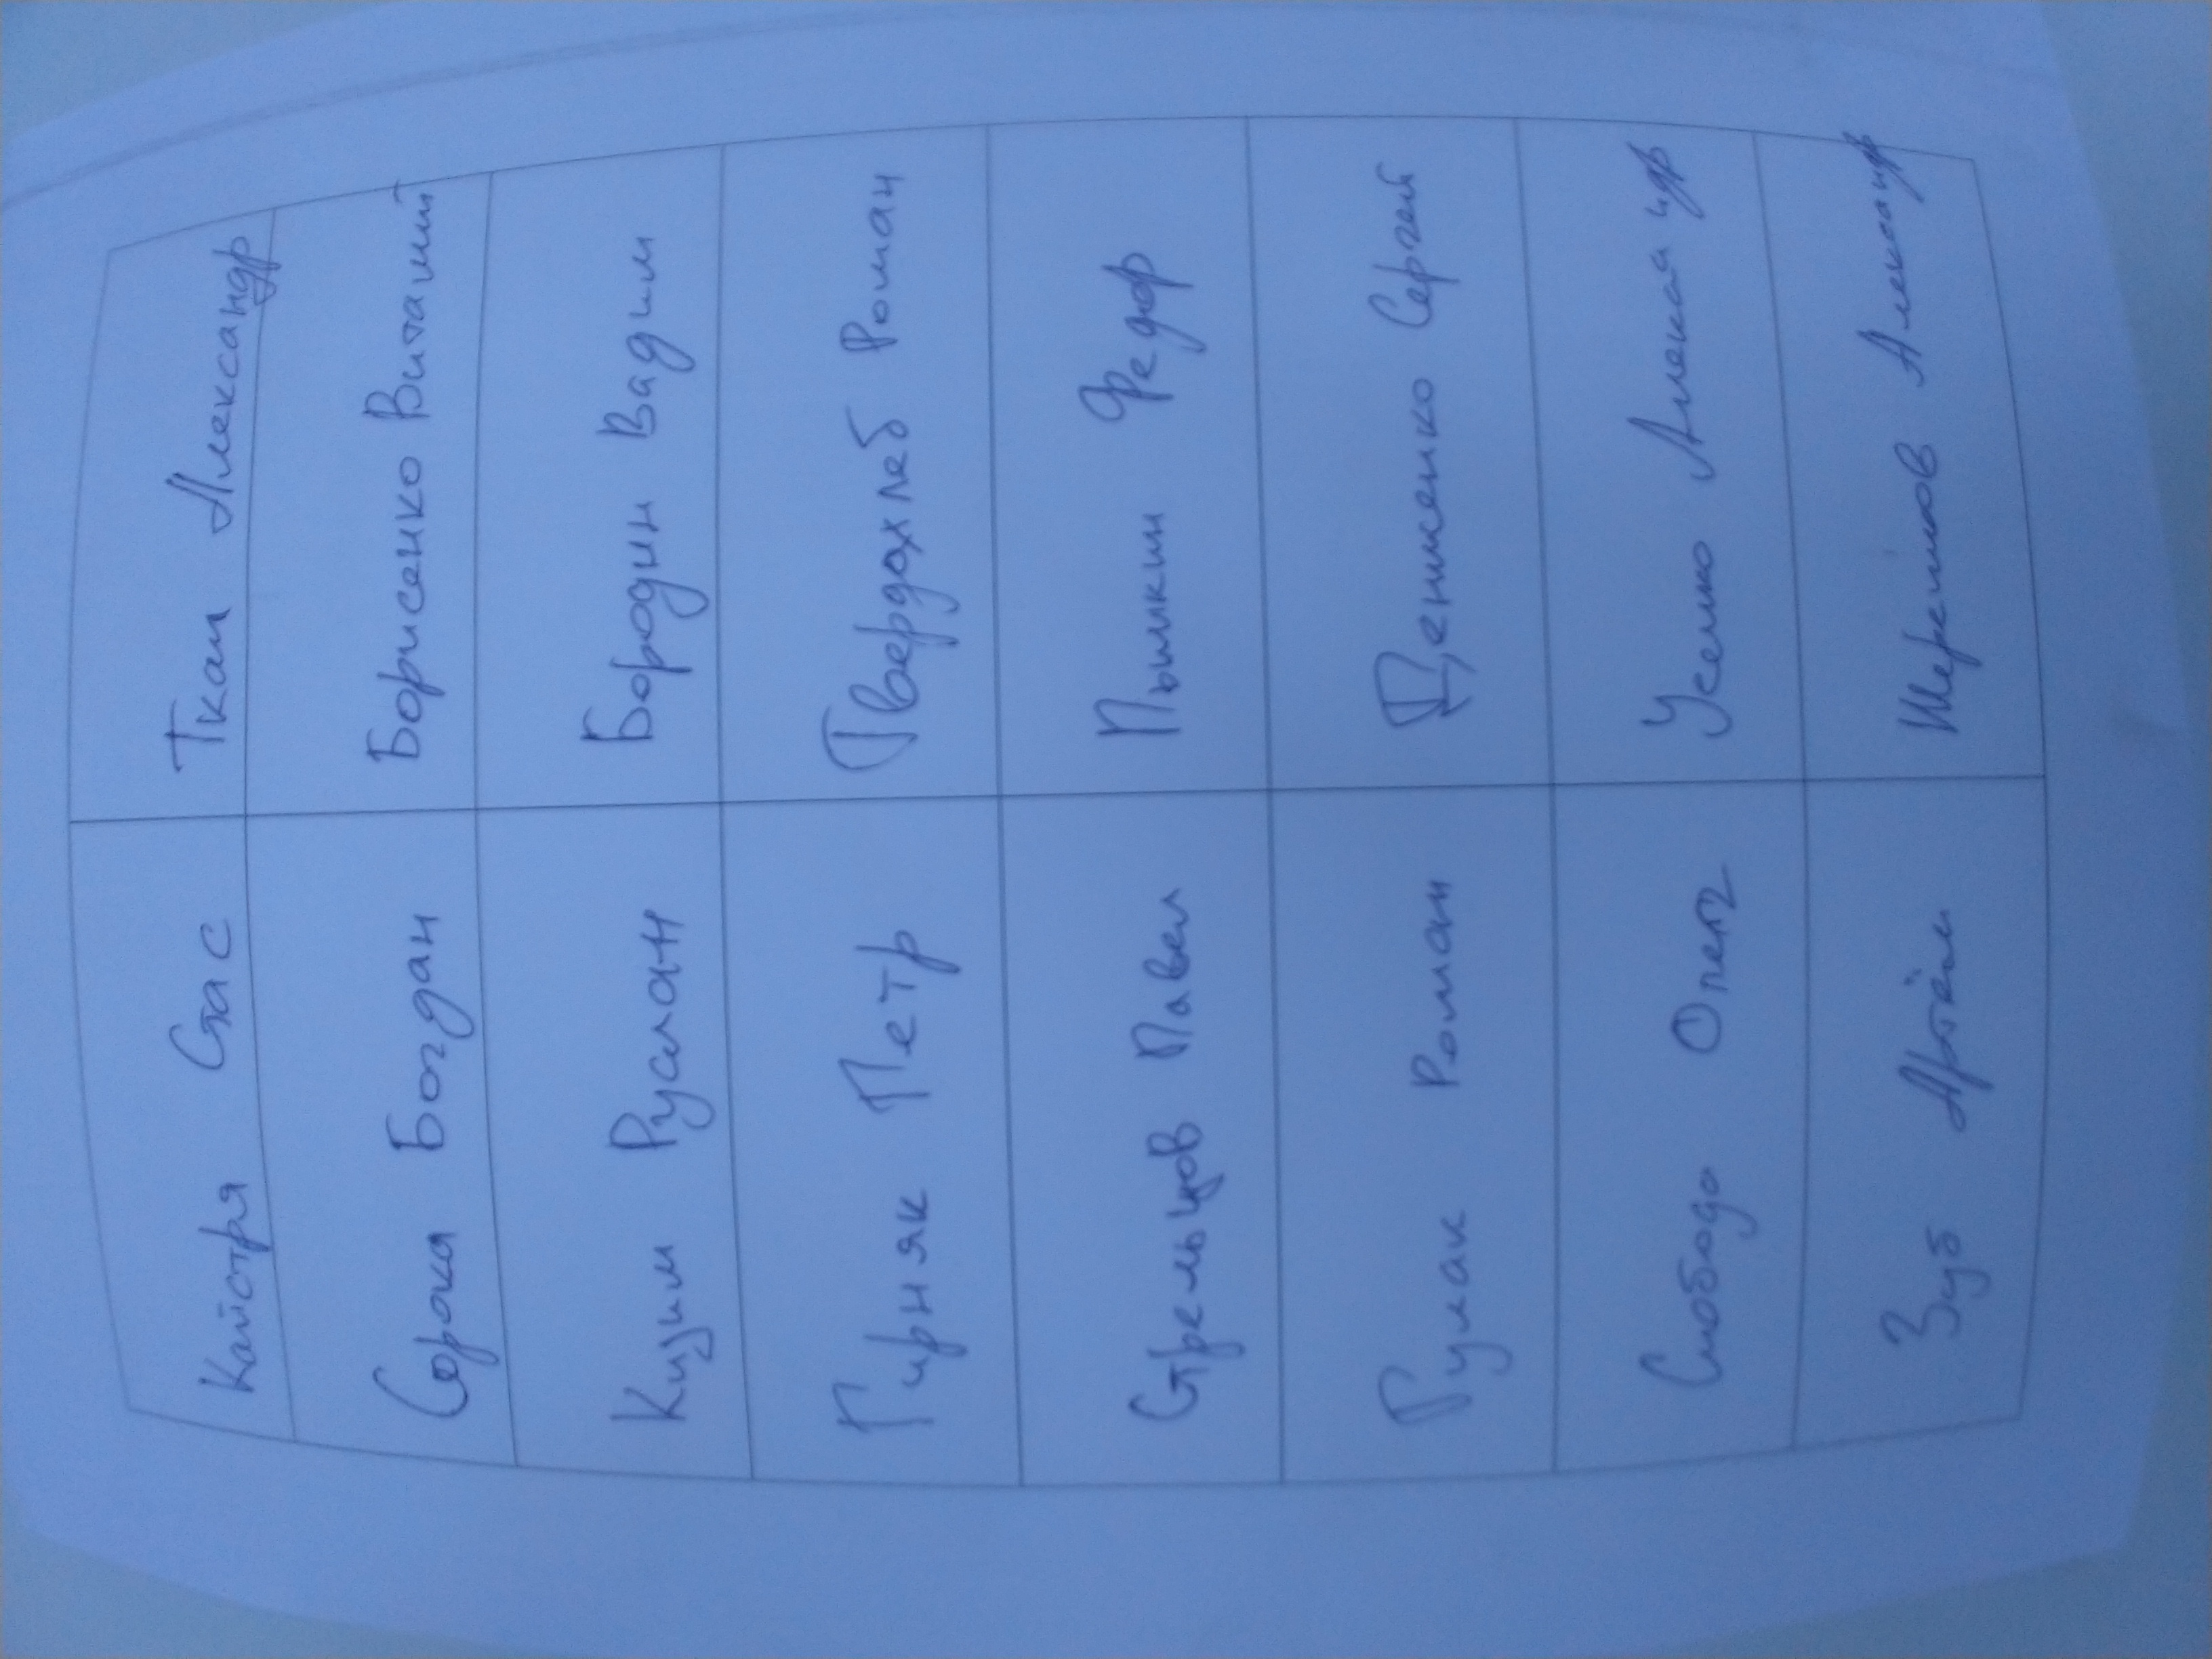 Кайстря Стас Ткач Александр
Сорока Богдан Борисенко Виталий
Кизим Руслан Бородин Вадим
Гирняк Петр Твердохлеб Роман
Стрельцов Павел Пышкин Федор
Гулак Роман Денисенко Сергей
Слобода Олег Усенко Александр
Зуб Артём Александр